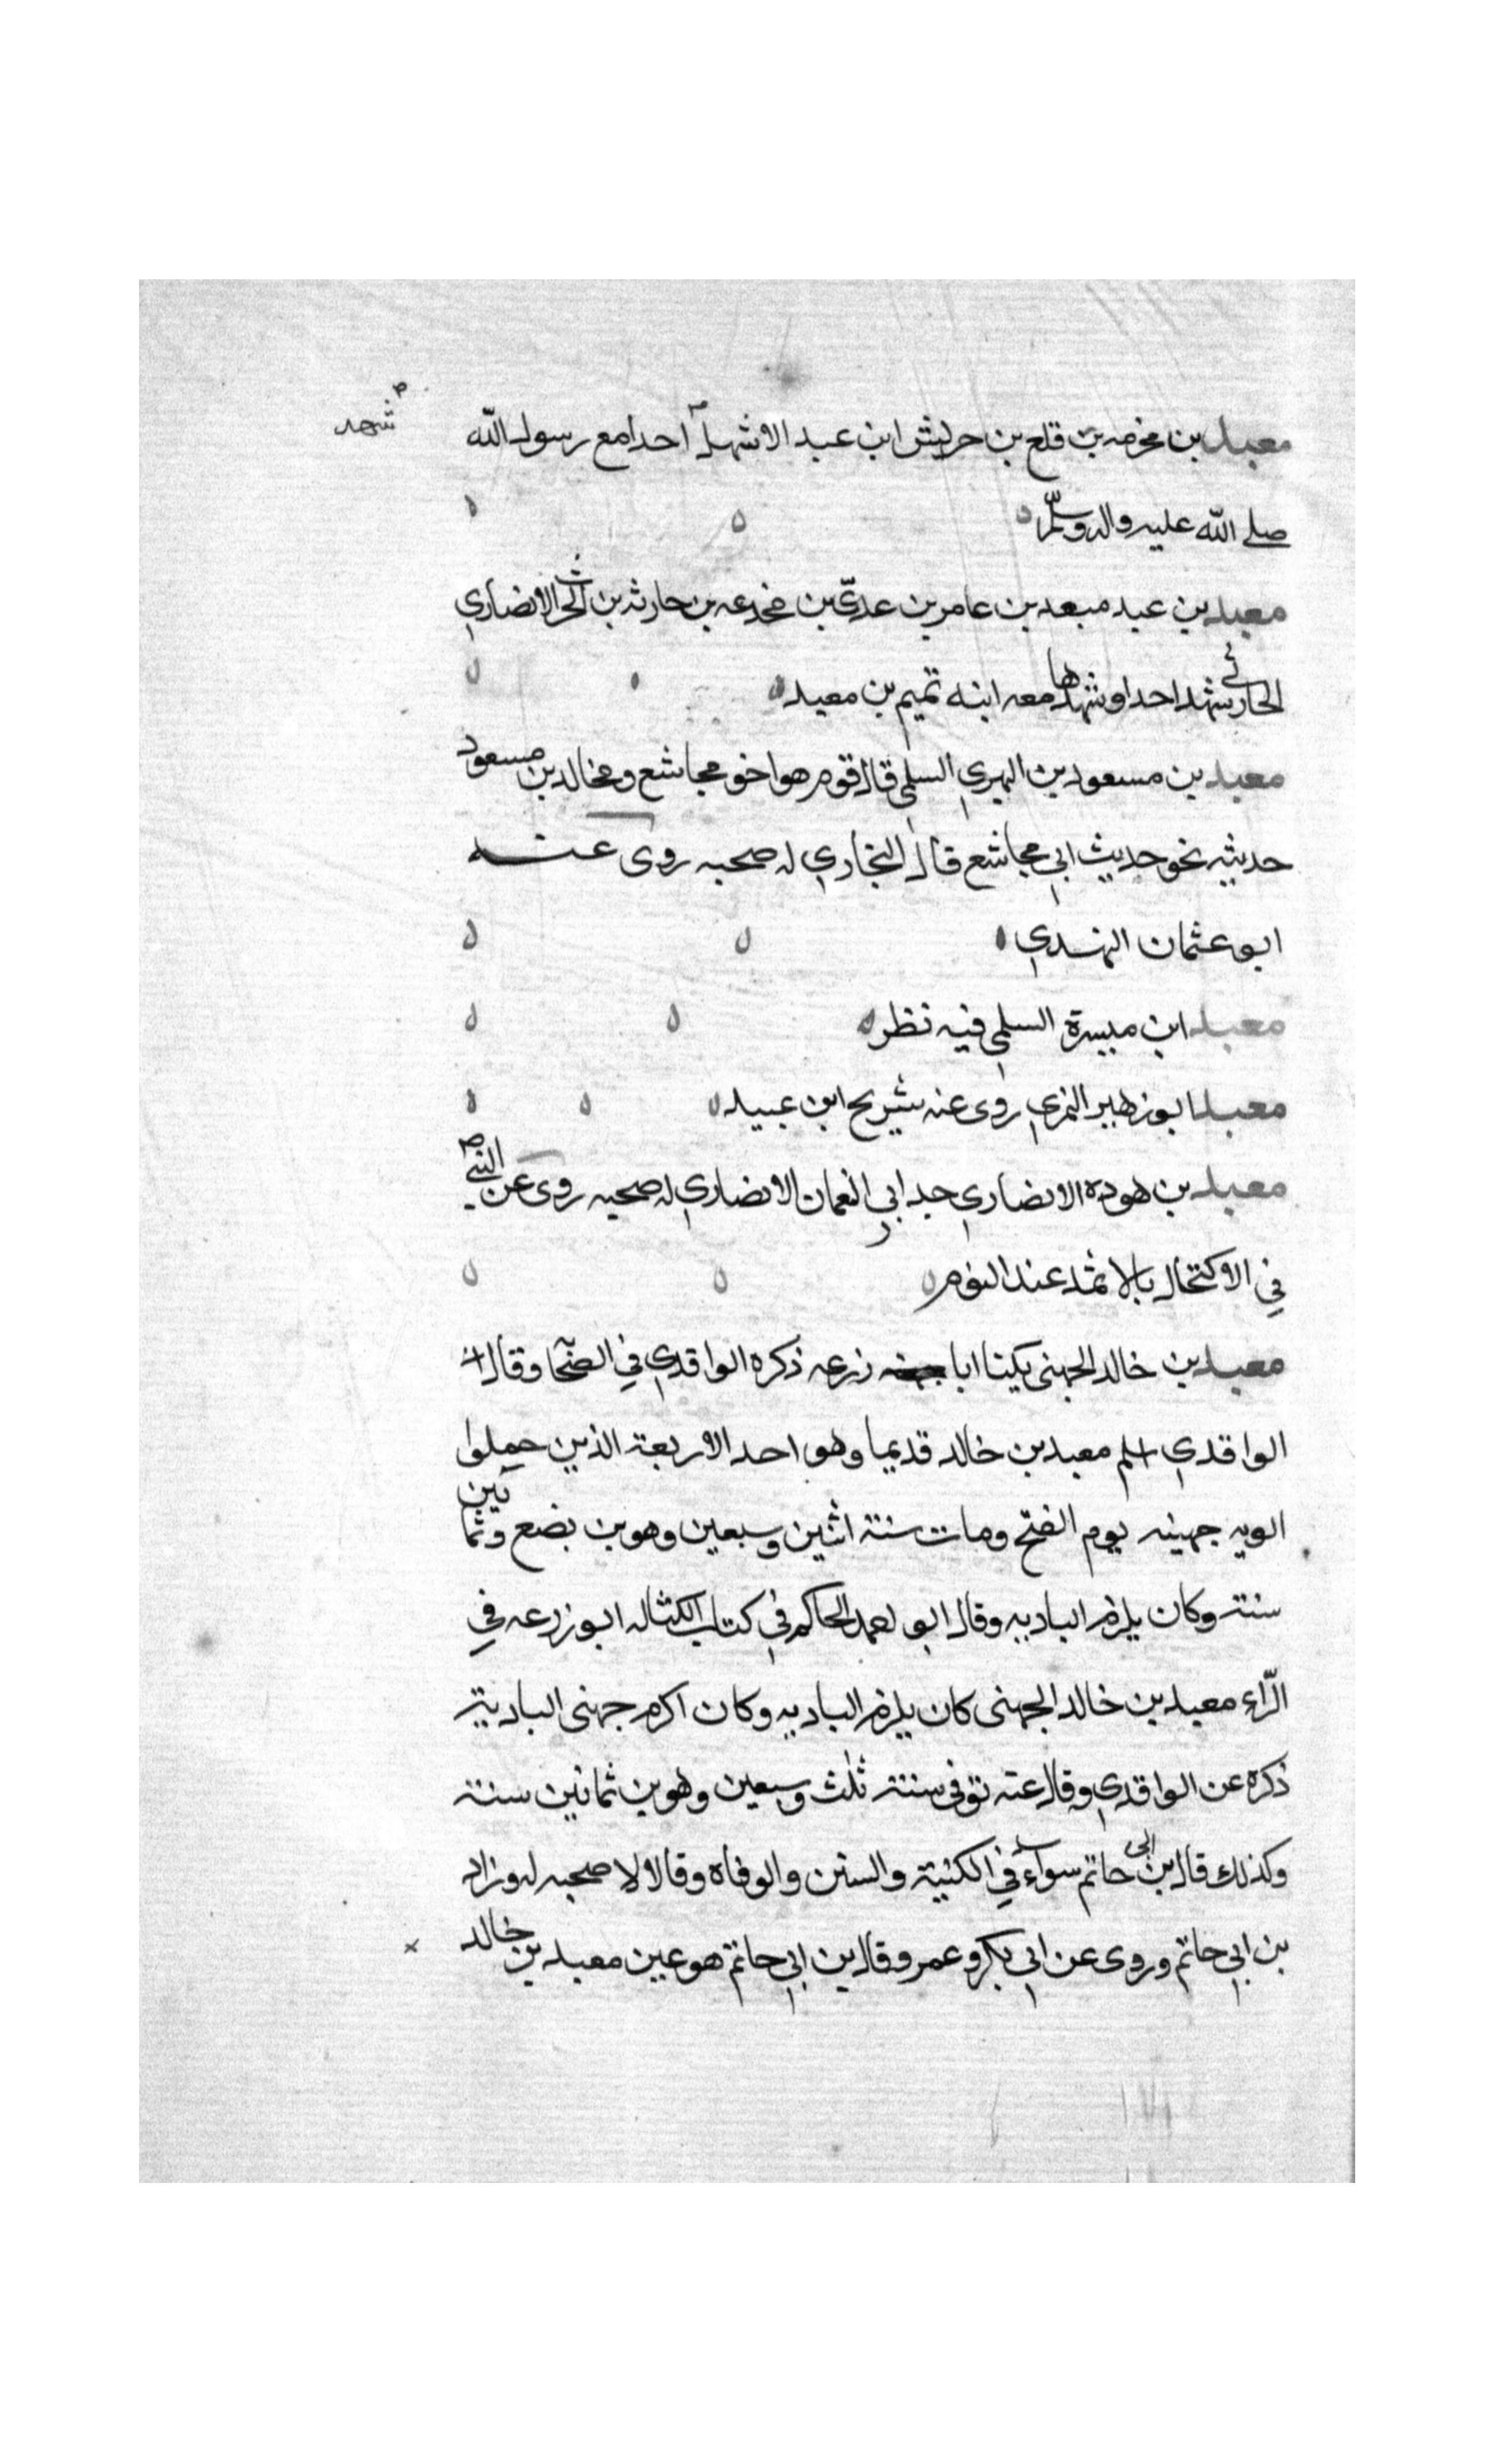 شهد
معبد بن مخرمه بن قلع بن حريش ابن عبد الاشهل احدا مع رسول الله
صلى الله عليه واله وسلم
معبد بن عبد مبعد بن عامر بن عدي بن مخدعه بن حارثه بن الحرث الانصاري
الحارثي شهد احدا وشهدها معه ابنه تميم بن معبد
معبد بن مسعود بن النهدي السلمي قال قوم هو اخو مجاشع ومخالد بن مسعود
حديثه نحو حديث ابي مجاشع قال البخاري له صحبه روى عنه
ابو عثمان النهدي
معبد ابن ميسرة السلمي فيه نظر
معبد ابو زهير النمري روى عنه شريح ابن عبيد
معبد بن هوده الانصاري جد ابي النعمان الانصاري له صحبه روى عن النبي
في الاكتحال بالاثمد عند النوم
معبد بن خالد الجهني يكنا ابا زرعه ذكره الواقدي في الصحا وقال
الواقدي اسلم معبد بن خالد قديما وهو احد الاربعة الذين حملوا
الويه جهينه يوم الفتح ومات سنة اثنين وسبعين وهو بن بضع وثمانين
سنة وكان يلزم الباديه وقال ابو احمد الحاكم في كتاب الكنا له ابو زرعه في
الرّاء معبد بن خالد الجهني كان يلزم الباديه وكان اكرم جهني البادية
ذكره عن الواقدي وقال عنه توفى سنة ثلث وسبعين وهو بن ثمانين سنة
وكذلك قال بن ابى حاتم سواء في الكنية والسن والوفاه وقالا لا صحبه له وزاد
بن ابي حاتم وروى عن ابي بكر وعمر وقال بن ابي حاتم هو عين معبد بن خالد